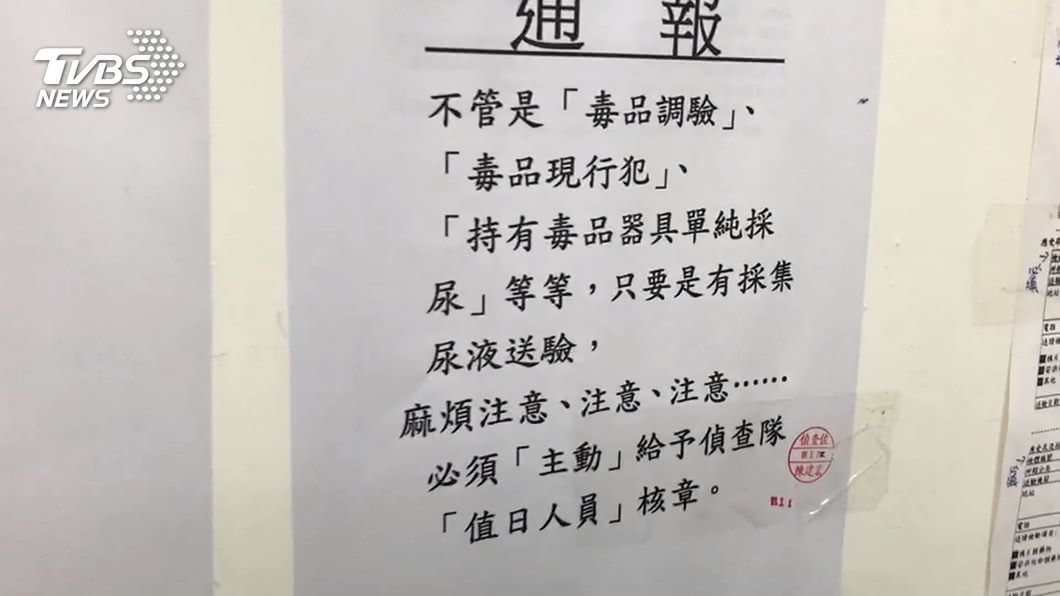 TVBS
NEWS
通報
不管是「毒品調驗」、
「毒品現行犯」、
「持有毒品器具單純採
尿」等等，只要是有採集
尿液送驗，
麻煩注意、注意、注意……
必須「主動」給予偵查隊
「值日人員」核章。
偵查佐
電話
地址